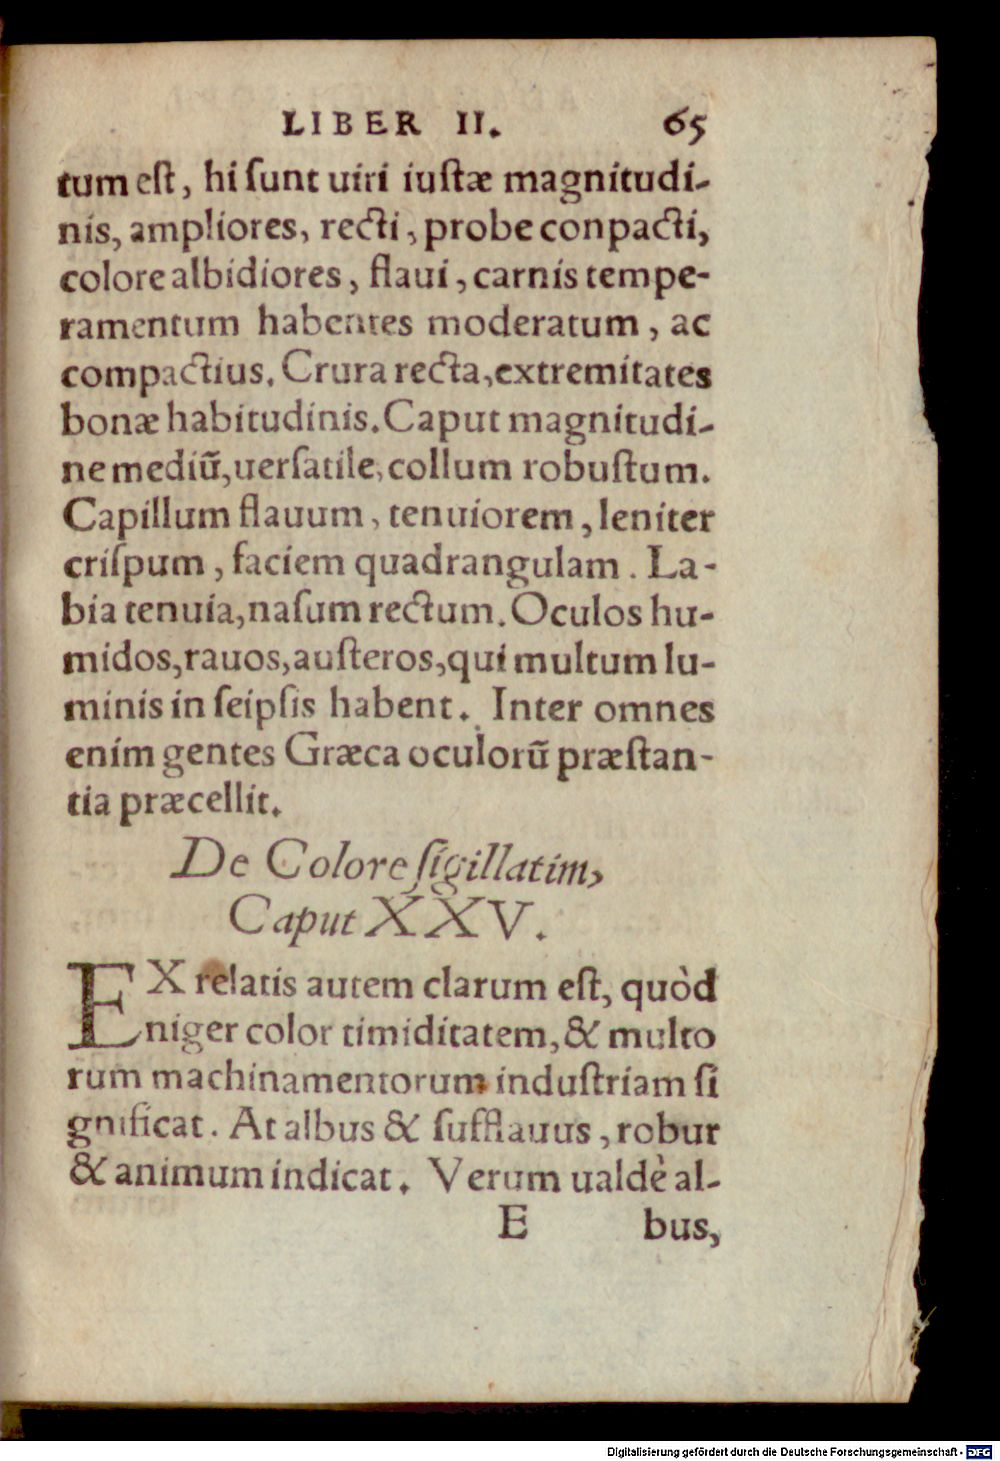 LIBER II. 65
tum eſt, hi ſunt uiri iuſtæ magnitudi-
nis, ampliores, recti, probe conpacti,
colore albidiores, flaui, carnis tempe-
ramentum habentes moderatum, ac
compactius. Crura recta, extremitates
bonæ habitudinis. Caput magnitudi-
ne mediū, uerſatile, collum robuſtum.
Capillum flauum, tenuiorem, leniter
criſpum, faciem quadrangulam. La-
bia tenuia, naſum rectum. Oculos hu-
midos, rauos, auſteros, qui multum lu-
minis in ſeipſis habent. Inter omnes
enim gentes Græca oculorū præſtan-
tia præcellit.
De Colore ſigillatim,
Caput XXV.
EX relatis autem clarum eſt, quòd
niger color timiditatem, & multo
rum machinamentorum induſtriam ſi
gnificat. At albus & ſufflauus, robur
& animum indicat. Verum ualdè al-
E bus,
Digitalisierung gefördert durch die Deutsche Forschungsgemeinschaft - DFG